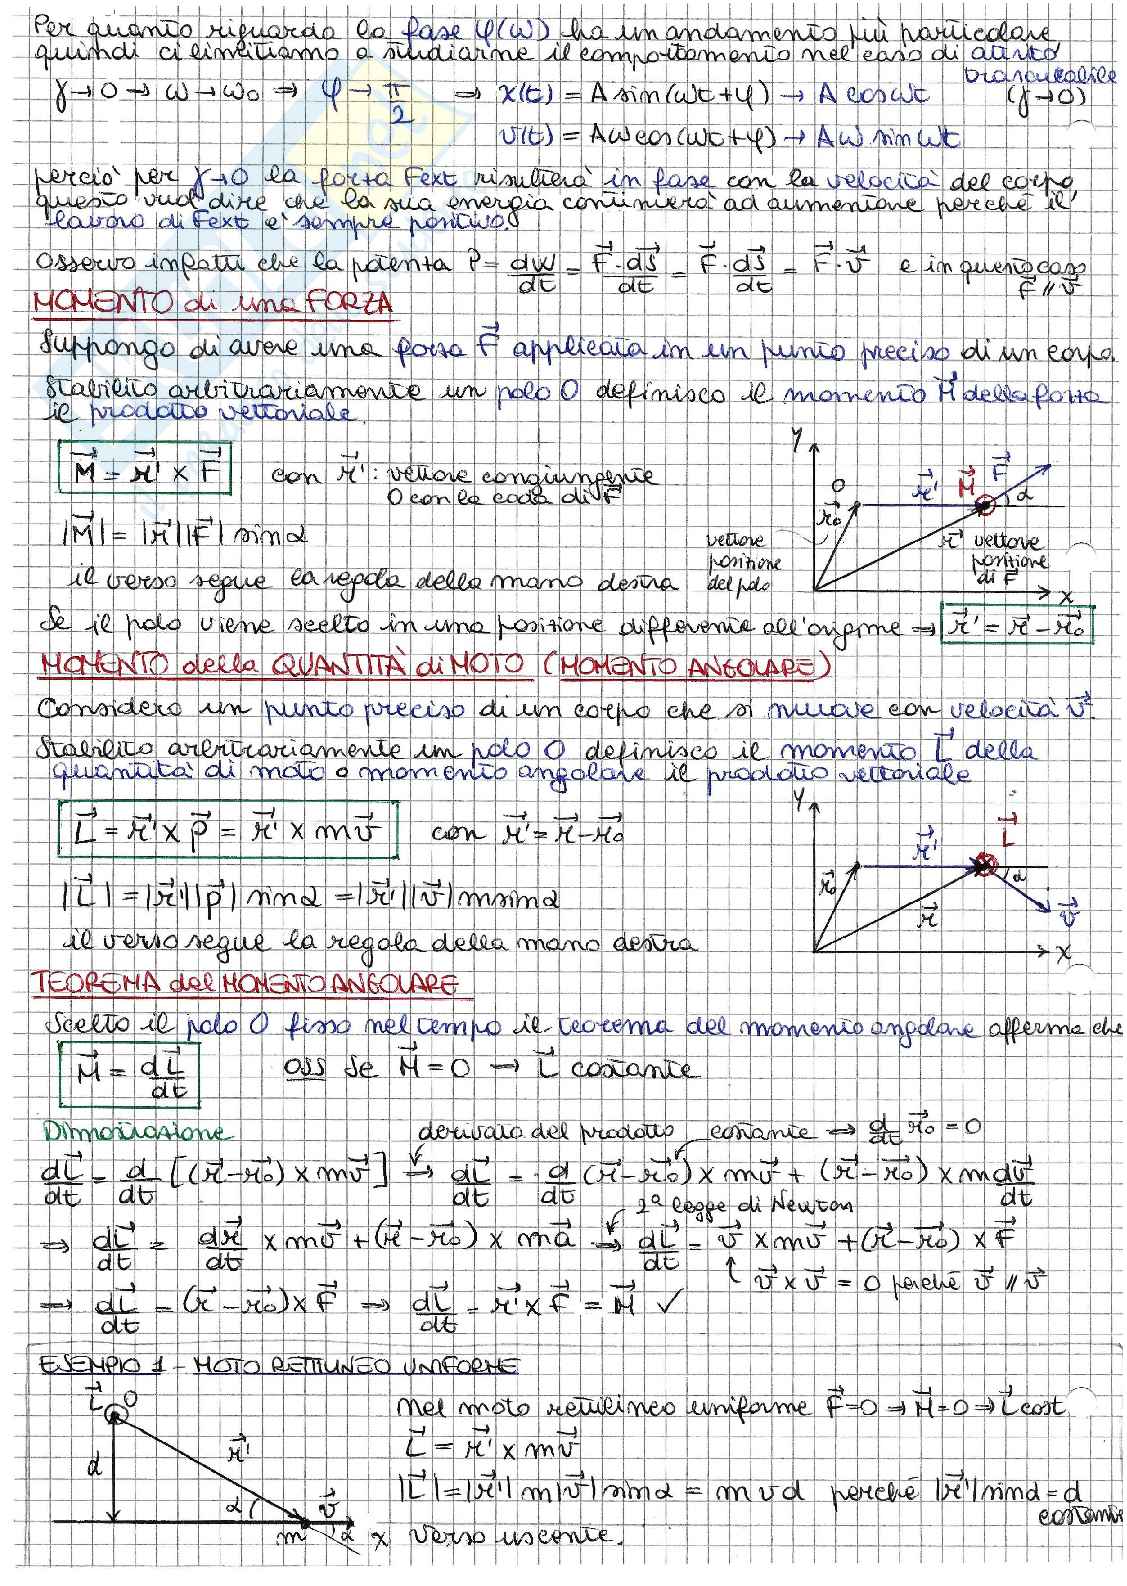 Per quanto riguarda la fase φ(ω) ha un andamento più particolare,
quindi ci limitiamo a studiarne il comportamento nel caso di attrito
trascurabile
γ→0 → ω→ω₀ ⇒ φ→ π/2 ⇒ x(t) = A sin(ωt+φ) → A cos ωt (γ→0)
v(t) = Aω cos(ωt+φ) → Aω sin ωt
perciò per γ→0 la forza Fext risulterà in fase con la velocità del corpo,
questo vuol dire che la sua energia continuerà ad aumentare perché il
lavoro di Fext è sempre positivo.
Osservo infatti che la potenza P = dW/dt = F⃗·ds⃗/dt = F⃗·ds⃗/dt = F⃗·v⃗ e in questo caso
F⃗ // v⃗
MOMENTO di una FORZA
Suppongo di avere una forza F⃗ applicata in un punto preciso di un corpo.
Stabilito arbitrariamente un polo O definisco il momento M⃗ della forza
il prodotto vettoriale
M⃗ = r⃗' × F⃗ con r⃗': vettore congiungente
O con la coda di F⃗
|M⃗| = |r⃗||F⃗| sinα
il verso segue la regola della mano destra
y
O r⃗' M⃗ F⃗ α
r⃗₀
vettore posizione del polo
r⃗ vettore posizione di F⃗
x
Se il polo viene scelto in una posizione differente all'origine → r⃗' = r⃗ - r⃗₀
MOMENTO della QUANTITÀ di MOTO (MOMENTO ANGOLARE)
Considero un punto preciso di un corpo che si muove con velocità v⃗.
Stabilito arbitrariamente un polo O definisco il momento L⃗ della
quantità di moto o momento angolare il prodotto vettoriale
L⃗ = r⃗' × p⃗ = r⃗' × mv⃗ con r⃗' = r⃗ - r⃗₀
|L⃗| = |r⃗'||p⃗| sinα = |r⃗'||v⃗| m sinα
il verso segue la regola della mano destra
y
r⃗' L⃗
r⃗₀ r⃗ α v⃗
x
TEOREMA del MOMENTO ANGOLARE
Scelto il polo O fisso nel tempo il teorema del momento angolare afferma che
M⃗ = dL⃗/dt OSS Se M⃗ = 0 → L⃗ costante
Dimostrazione derivata del prodotto costante ⇒ d/dt r⃗₀ = 0
dL⃗/dt = d/dt [(r⃗ - r⃗₀) × mv⃗] ⇒ dL⃗/dt = d/dt (r⃗ - r⃗₀) × mv⃗ + (r⃗ - r⃗₀) × m dv⃗/dt
2ª legge di Newton
⇒ dL⃗/dt = dr⃗/dt × mv⃗ + (r⃗ - r⃗₀) × ma⃗ ⇒ dL⃗/dt = v⃗ × mv⃗ + (r⃗ - r⃗₀) × F⃗
v⃗ × v⃗ = 0 perché v⃗ // v⃗
⇒ dL⃗/dt = (r⃗ - r⃗₀) × F⃗ ⇒ dL⃗/dt = r⃗' × F⃗ = M⃗ ✓
ESEMPIO 1 - MOTO RETTILINEO UNIFORME
L⃗ O
d r⃗'
α v⃗
m α x
Nel moto rettilineo uniforme F⃗=0 ⇒ M⃗=0 ⇒ L⃗ cost.
L⃗ = r⃗' × mv⃗
|L⃗| = |r⃗'| m|v⃗| sinα = mvd perché |r⃗'| sinα = d
costante
verso uscente.